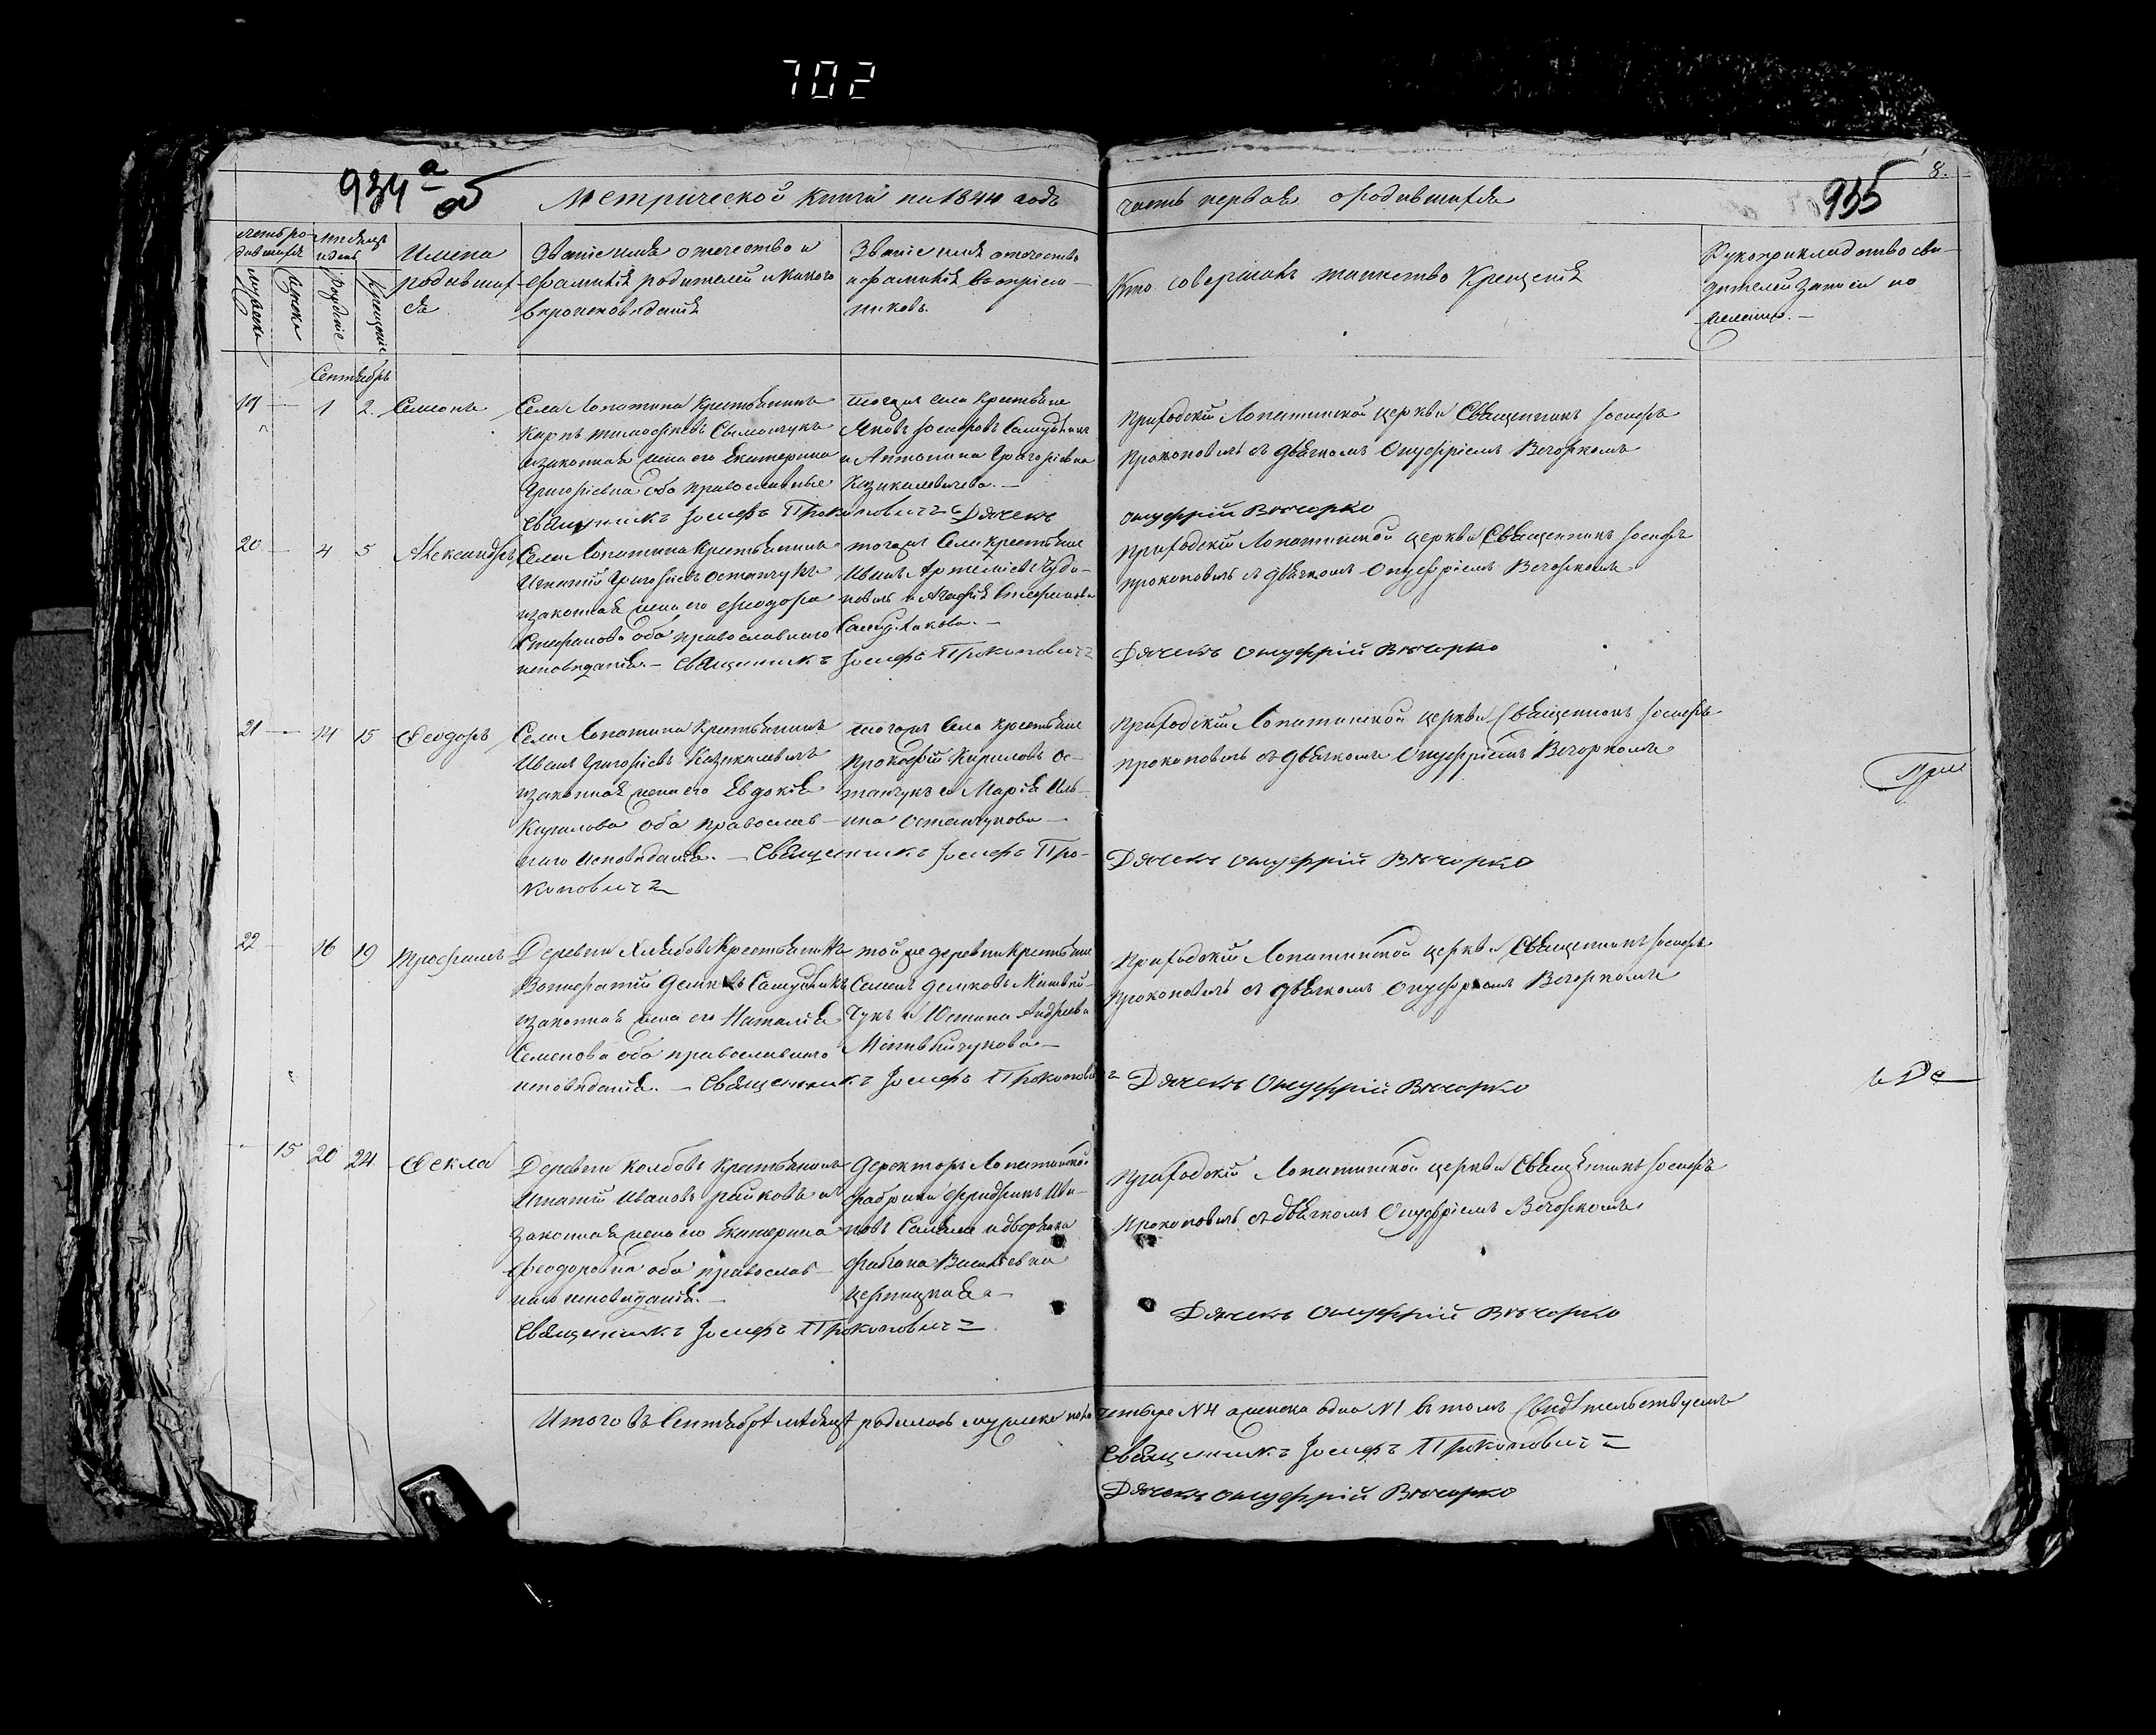 702
934 а об
Метрической Книги на 1844 годъ часть первая о родившихся
935
8.
Счетъ родившихся
Мужеска
Женска
Месяцъ и день
Рождение
Крещение
Имена
родивших
ся
Званіе имя отчество и
фамилія родителей и какого
вероисповеданія
Званіе имя отчество
и фамилія воспріем-
никовъ.
Кто совершалъ таинство Крещенія
Рукоприкладство сви-
детелей записи по
желанію.
Сентябрь
19 1 2. Семонъ
Села Лопатина Крестьянинъ
Карпъ Тимофеевъ
законная жена его Екатерина
Григоріевна оба православные
Священникъ Іосифъ Прокоповичъ Дячекъ
тогожъ села крестьяне
Яковъ Іосифовъ
и Антонина Григоріевна
Приходскій Лопатинской церкви Священникъ Іосифъ
Прокоповичъ съ дьячкомъ Онуфріемъ Вечоркомъ
Онуфрій Вечорко
20 4 5 Александръ
Села Лопатина Крестьянинъ
Игнатій Григоріевъ Остапчукъ
законная жена его Феодора
Стефанова оба православнаго
исповеданія. Священникъ Іосифъ Прокоповичъ
тогожъ Села крестьяне
Иванъ Артеміевъ
и Агафія Стефанова
Приходскій Лопатинской церкви Священникъ Іосифъ
Прокоповичъ съ дьячкомъ Онуфріемъ Вечоркомъ
Дячекъ Онуфрій Вечорко
21 14 15 Феодоръ
Села Лопатина Крестьянинъ
Иванъ Григоріевъ
законная жена его Евдокія
Кирилова оба православ-
наго исповеданія. Священникъ Іосифъ Про-
коповичъ
тогожъ Села крестьяне
Прокофій Кириловъ Ос-
тапчукъ и Марія Иль-
ина Остапчукова
Приходскій Лопатинской церкви Священникъ Іосифъ
Прокоповичъ съ дьячкомъ Онуфріемъ Вечоркомъ
Дячекъ Онуфрій Вечорко
При
22 16 19 Трофимъ
Деревни Крестьянинъ
законная жена его Наталія
Семенова оба православнаго
исповеданія. Священникъ Іосифъ Прокоповичъ
той же деревни крестьяне
Семенъ Демковъ Матвий-
чукъ и Юстина Андреева
Матвийчукова
Приходскій Лопатинской церкви Священникъ Іосифъ
Прокоповичъ съ дьячкомъ Онуфріемъ Вечоркомъ
Дячекъ Онуфрій Вечорко
15 20 24 Фекла
Деревни Колбовъ Крестьянинъ
Игнатій Ивановъ
законная жена его Екатерина
Феодоровна оба православ-
наго исповеданія.
Священникъ Іосифъ Прокоповичъ
Деректоръ Лопатинской
фабрики Фридрихъ Ива-
новъ и дворянка
Васильевна
Приходскій Лопатинской церкви Священникъ Іосифъ
Прокоповичъ съ дьячкомъ Онуфріемъ Вечоркомъ
Дячекъ Онуфрій Вечорко
Итого въ Сентябрѣ месяцѣ родилось мужеска пола четыре N 4 а женска одна N 1 въ томъ Свидетельствуемъ
Священникъ Іосифъ Прокоповичъ
Дячекъ Онуфрій Вечорко